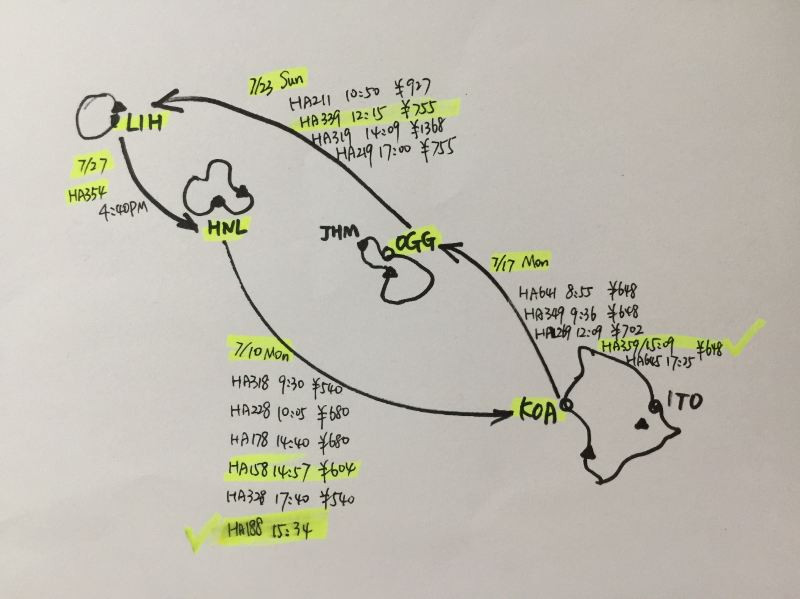 7/23 Sun
HA211 10:50 ¥927
HA339 12:15 ¥755
HA319 14:09 ¥1368
HA219 17:00 ¥755
LIH
7/27
HA354
4:40PM
HNL
JHM
OGG
7/17 Mon
HA641 8:55 ¥648
HA349 9:36 ¥648
HA1269 12:09 ¥702
HA359/15:09 ¥648
HA645 17:25
7/10 Mon
HA318 9:30 ¥540
HA228 10:05 ¥680
HA178 14:40 ¥680
HA158 14:57 ¥604
HA328 17:40 ¥540
HA188 15:34
KOA
ITO